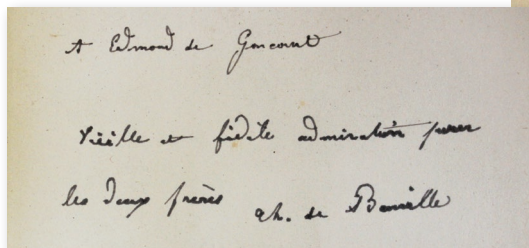 A Edmond de Goncourt
Vieille et fidèle admiration pour
les deux frères Th. de Banville